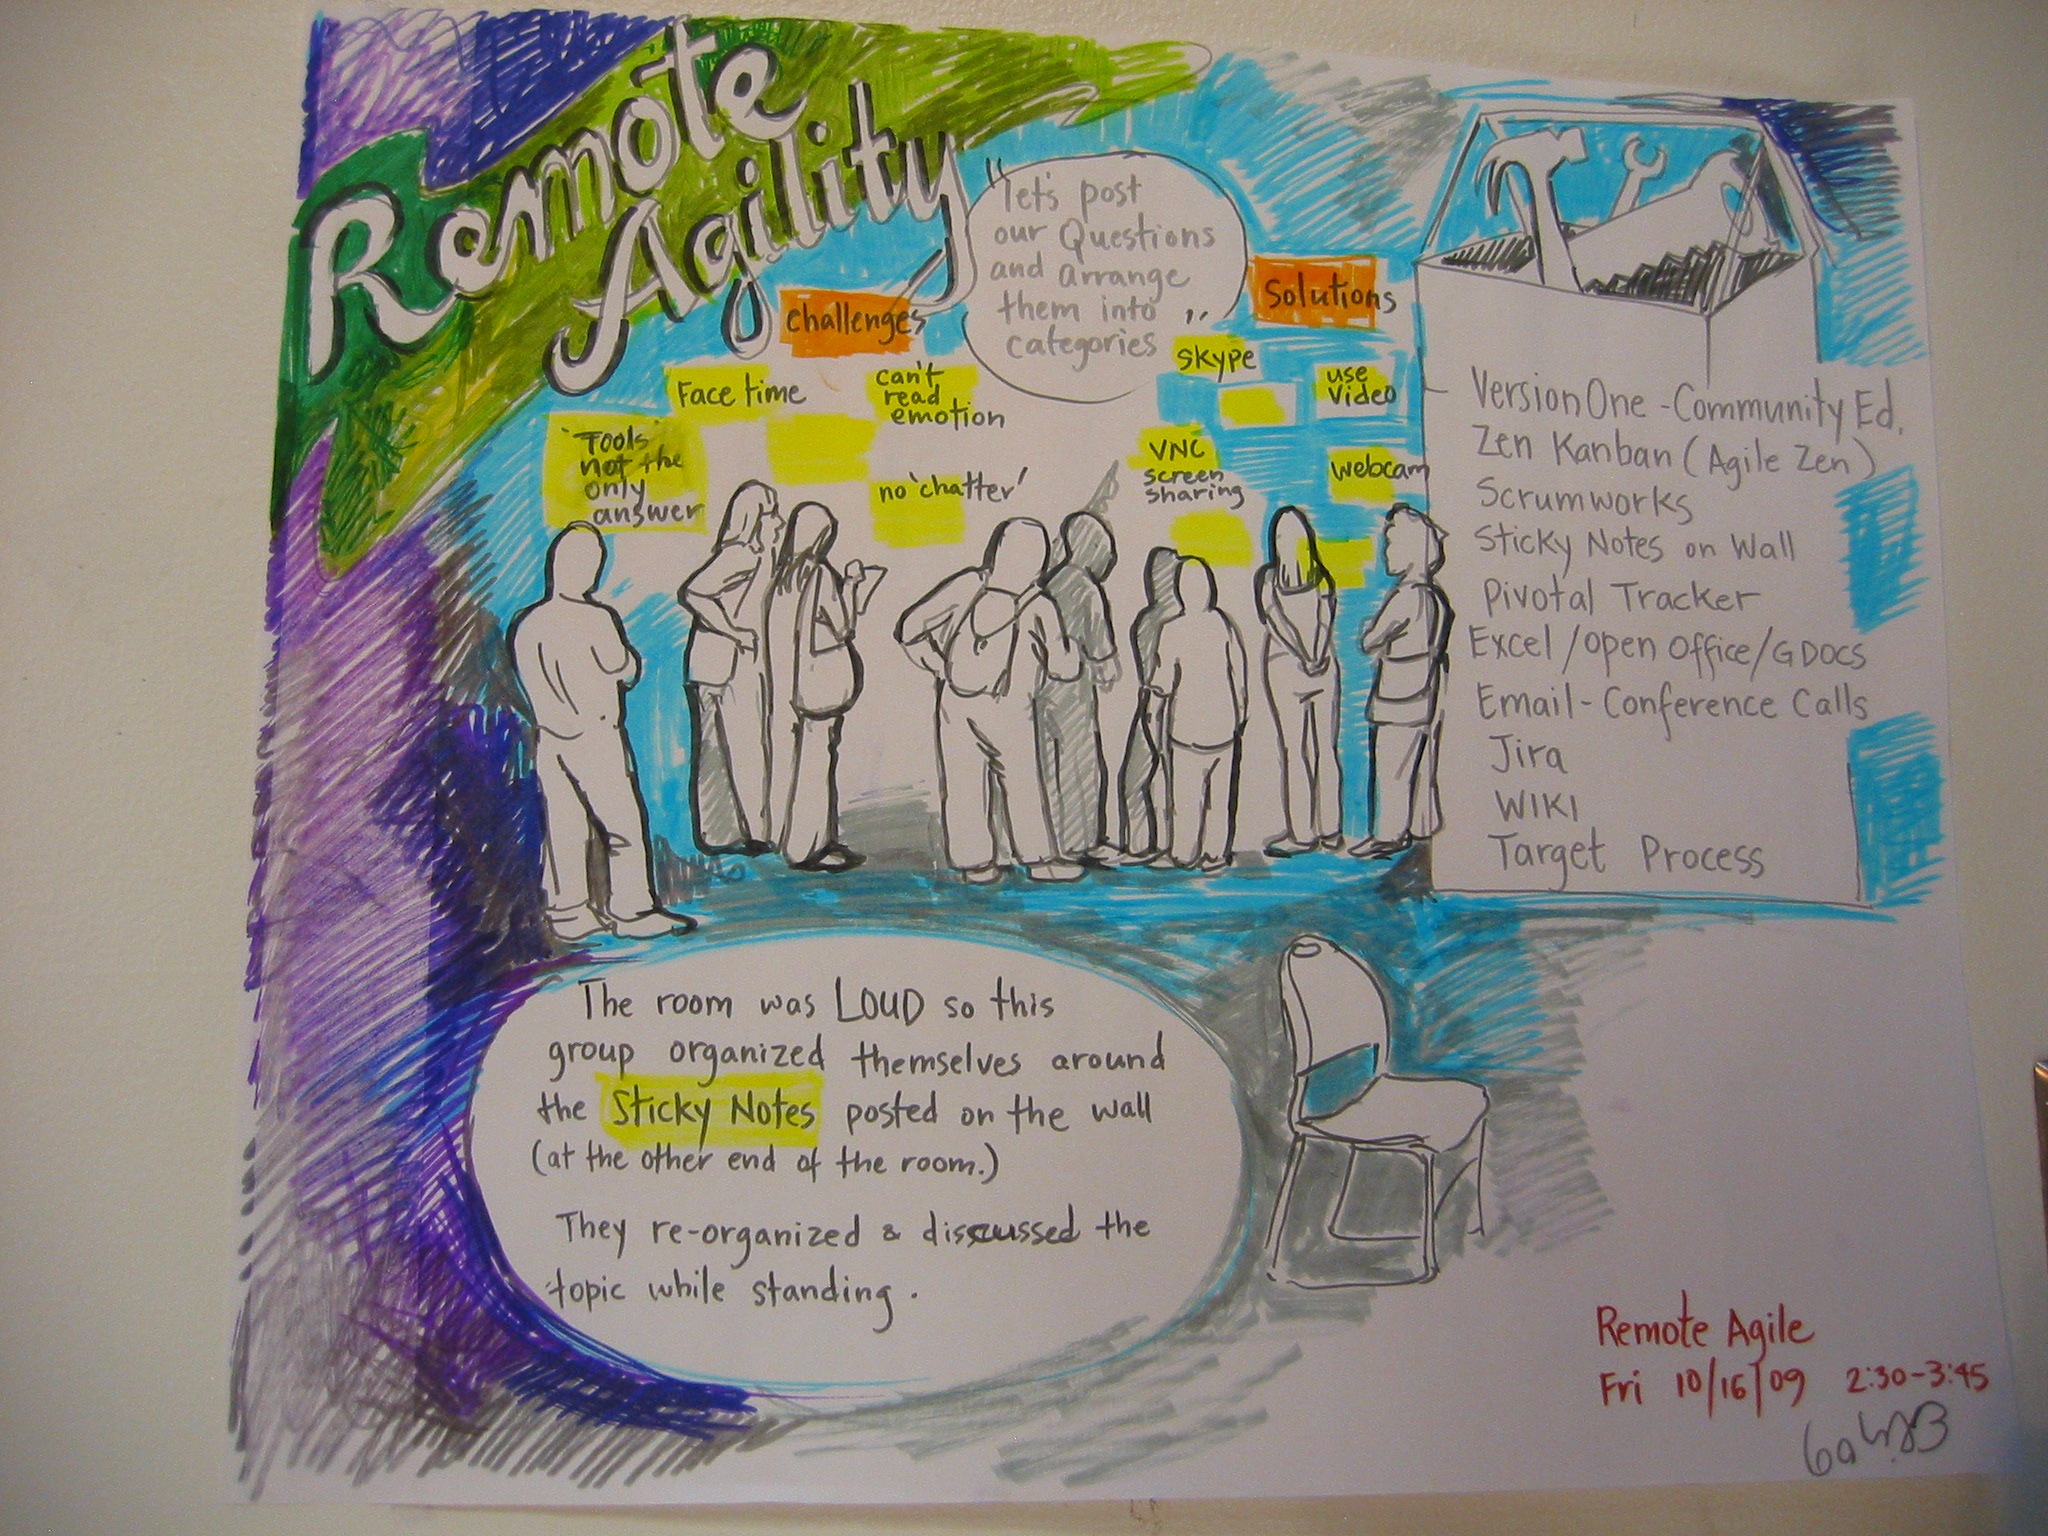 Remote
Agility
"let's post
our Questions
and arrange
them into
categories"
challenges
Solutions
Face time
can't
read
emotion
"Tools"
not the
only
answer
no 'chatter'
skype
use
Video
VNC
screen
sharing
webcam
VersionOne - Community Ed.
Zen Kanban (Agile Zen)
Scrumworks
Sticky Notes on Wall
Pivotal Tracker
Excel / Open Office / GDOCS
Email - Conference Calls
Jira
WIKI
Target Process
The room was LOUD so this
group organized themselves around
the Sticky Notes posted on the wall
(at the other end of the room.)
They re-organized & discussed the
topic while standing.
Remote Agile
Fri 10/16/09 2:30-3:45